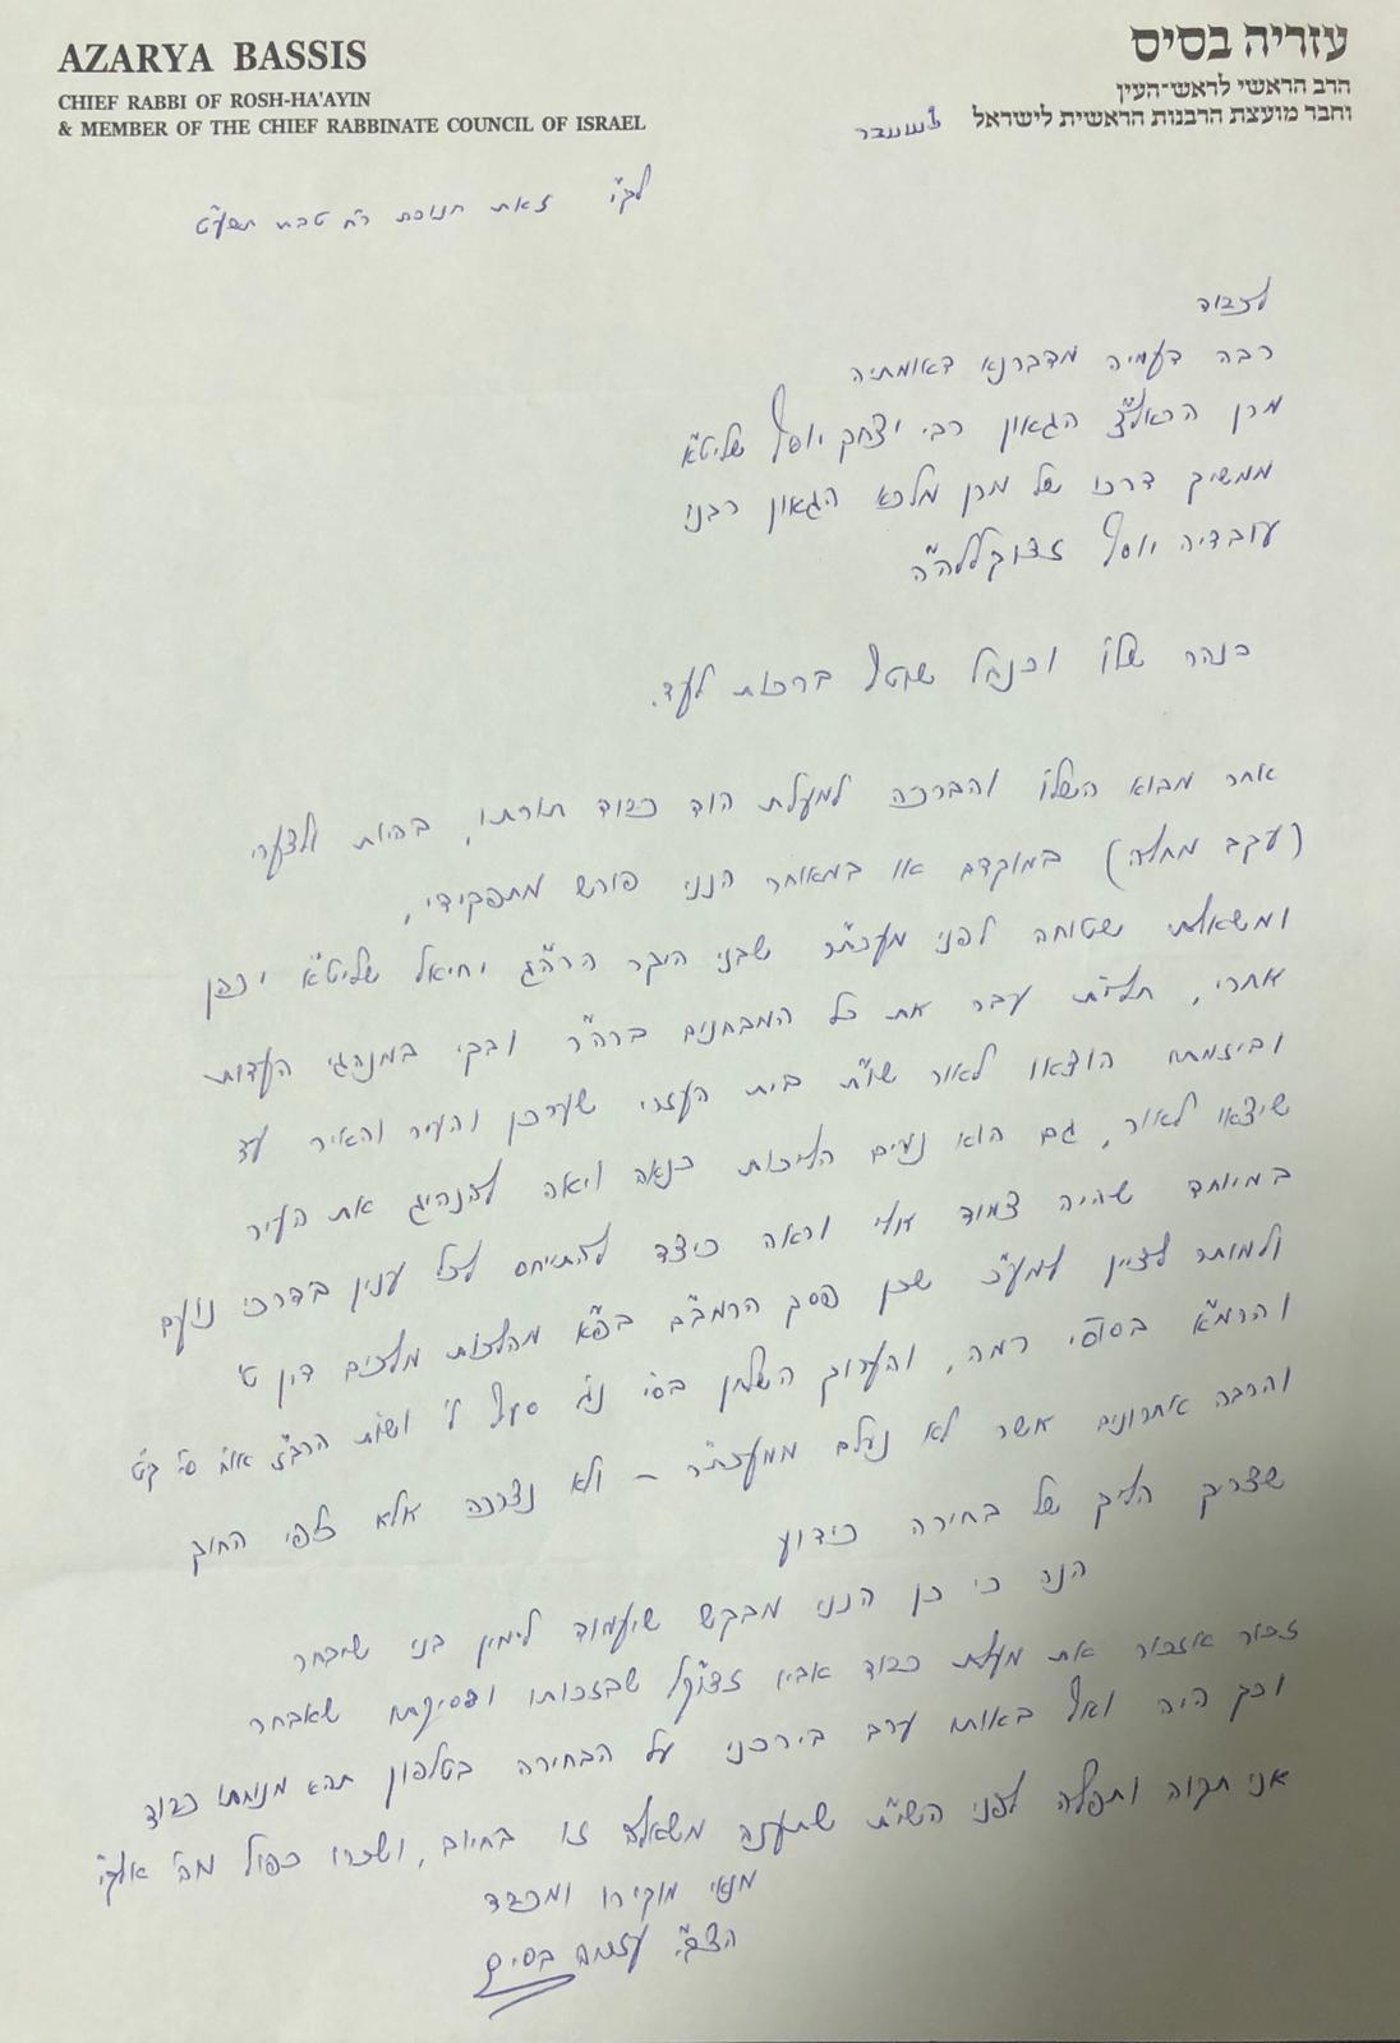 עזריה בסיס
AZARYA BASSIS
הרב הראשי לראש־העין
CHIEF RABBI OF ROSH-HA'AYIN
וחבר מועצת הרבנות הראשית לישראל לשעבר
& MEMBER OF THE CHIEF RABBINATE COUNCIL OF ISRAEL
לק"י זאת חנוכת ר"ח טבת תשע"ט
לכבוד
רבה דעמיה מדברנא דאומתיה
מרן הראש"ל הגאון רבי יצחק יוסף שליט"א
ממשיך דרכו של מרן מלכא הגאון רבנו
עובדיה יוסף זצוקללה"ה
כנהר שלו' וכנחל שוטף ברכות לעד.
אחר מבוא השלו' והברכה למעלת הוד כבוד תורתו, בהיות ולצערי
(עקב מחלה) במוקדם או במאוחר הנני פורש מתפקידי,
ומשאלתי שטוחה לפני מעכ"ת שבני היקר הרה"ג יחיאל שליט"א יכהן
אחרי, תלי"ת עבר את כל המבחנים ברה"ר ובקי במנהגי העדות
וביזמתו הוצאו לאור שו"ת בית העזרי שערכן והעיר והאיר עד
שיצאו לאור, גם הוא נעים הליכות כנאה ויאה להנהיג את העיר
במיוחד שהיה צמוד אלי וראה כיצד להתייחס לכל ענין בדרכי נועם
ולמותר לציין למע"כ שכן פסק הרמב"ם בפ"א מהלכות מלכים דין ט'
והרמ"א בסוסי' רמה, והערוך השלחן בסי' נג סעיף ל' ושו"ת הרב"ז או"ח סי' קט
והרבה אחרונים אשר לא נעלם ממעכ"ת – ולא נצרכה אלא דלפי החוק
שצריך הליך של בחירה כידוע
הנה כי כן הנני מבקש שיעמוד לימין בני שיבחר
זכור אזכור את מעלת כבוד אביו זצוק"ל שבזכותו ופסיקתו שאבחר
וכך היה ואף באותו ערב בירכני על הבחירה בטלפון תהא מנוחתו כבוד
אני תקוה ותפלה לפני השי"ת שתענה משאלה זו בחיוב, ושכרו כפול מה' אלקי
מנאי מוקירו ומכבד
הצב"י עזריה בסיס